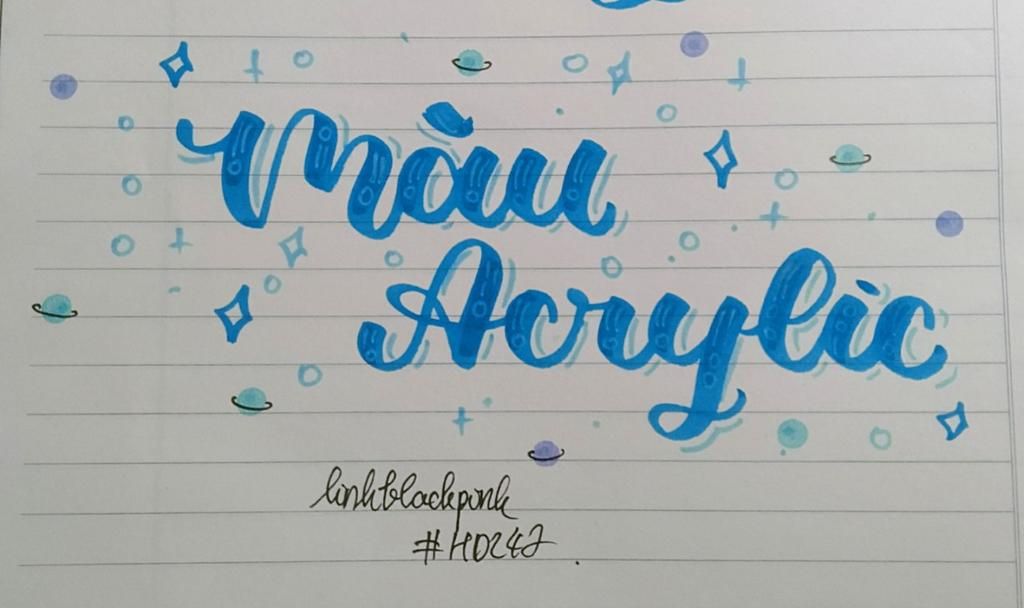 Màu
Acrylic
linhblackpink
#HD247